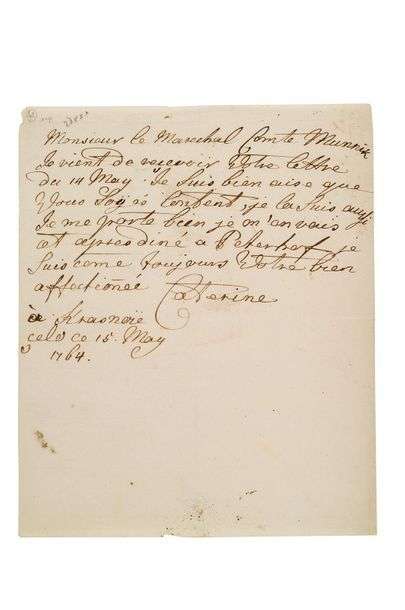 Monsieur le Marechal Comte Munnik
Je vient de recevoir Votre lettre
du 14 May. Je suis bien aise que
Vous Soyés Content, je la Suis aussi
Je me porte bien je m'en vais
cet apres diné a Peterhof, je
Suis come toujours Votre bien
affectionée Caterine
à Krasnoie
celo ce 15. May
1764.